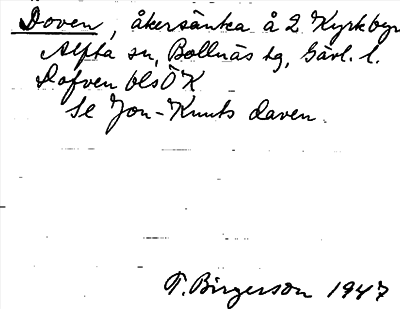 Doven, åkersänka å 2 Kyrkbyn
Alfta sn, Bollnäs tg, Gävl. l.
Dofven blsÖK
Se Jon-Knuts daven.
T. Birgerson 1947